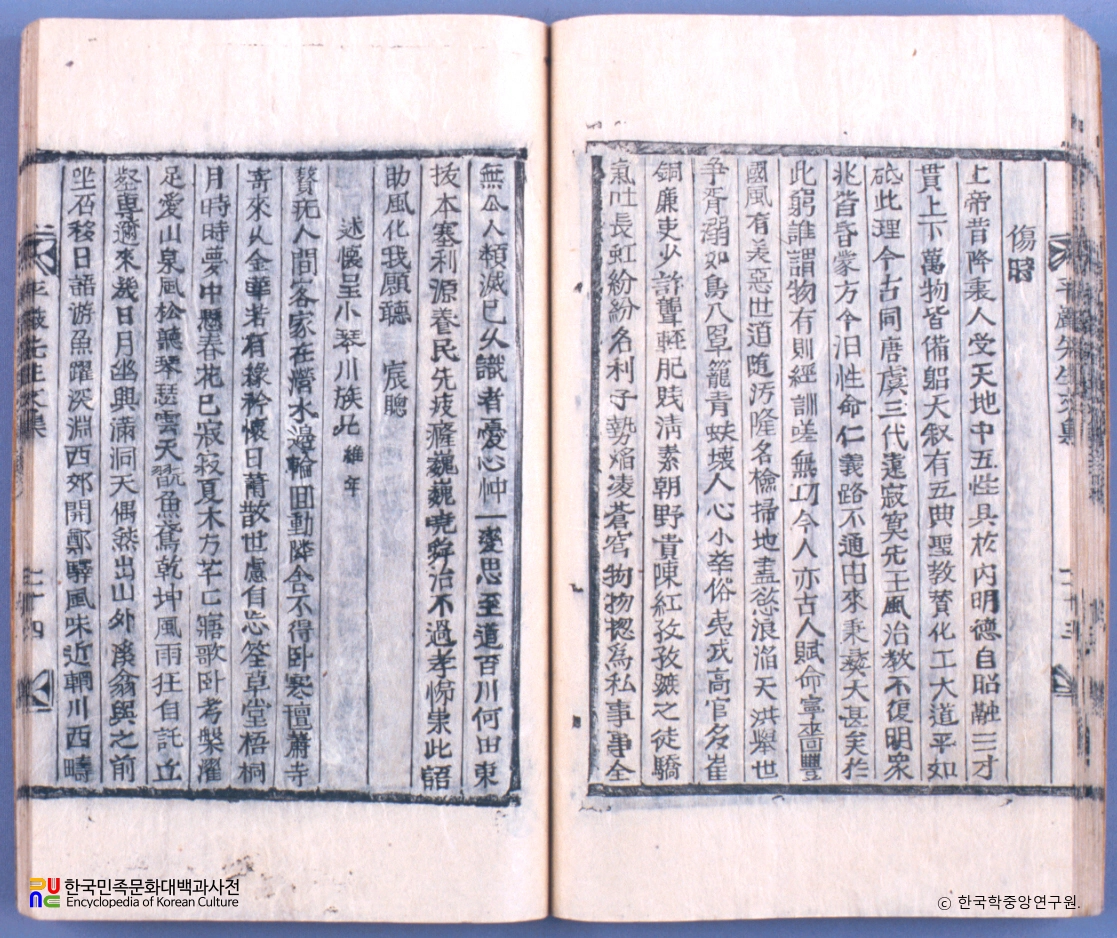 傷時
上帝昔降衷人受天地中五性具於內明德自昭融三才
貫上下萬物皆備躬天叙有五典聖敎贊化工大道平如
砥此理今古同唐虞三代遠寂寞先王風治敎不復明衆
兆皆昏蒙方今汨性命仁義路不通由來秉彝大甚矣於
此窮誰謂物有則經訓嗟無功今人亦古人賦命寧嗇豐
國風有美惡世道隨汚隆名檢掃地盡慾浪滔天洪擧世
爭胥溺如鳥入罩籠靑蚨壞人心小擧俗夷戎高官多崔
銅廉吏少許聾輕肥賤淸素朝野貴陳紅孜孜蹠之徒驕
氣吐長虹紛紛名利子勢焰凌蒼穹物物摠爲私事事全
無公人類滅已久識者憂心忡一變思至道百川何由東
拔本塞利源養民先疲癃巍巍堯舜治不過孝悌衷此詔
助風化我願聽宸聰
述懷呈小琴川族 維年
贅疣人間客家在灣水邊輪囬動隣舍不得臥寒壇蕭寺
寄來久金華若有緣衿懷日蕭散世慮自忘筌草堂梧桐
月時時夢中懸春花已寂寂夏木方芊口寤歌臥考槃濯
足愛山泉風松聽琴瑟雲天翫魚鳶乾坤風雨狂自託丘
壑專邇來幾日月幽興滿洞天偶然出山外溪翁與之前
坐石移日語游魚躍深淵西郊開鄭驛風味近輞川西疇
先生文集
二十四
한국민족문화대백과사전
Encyclopedia of Korean Culture
ⓒ 한국학중앙연구원.